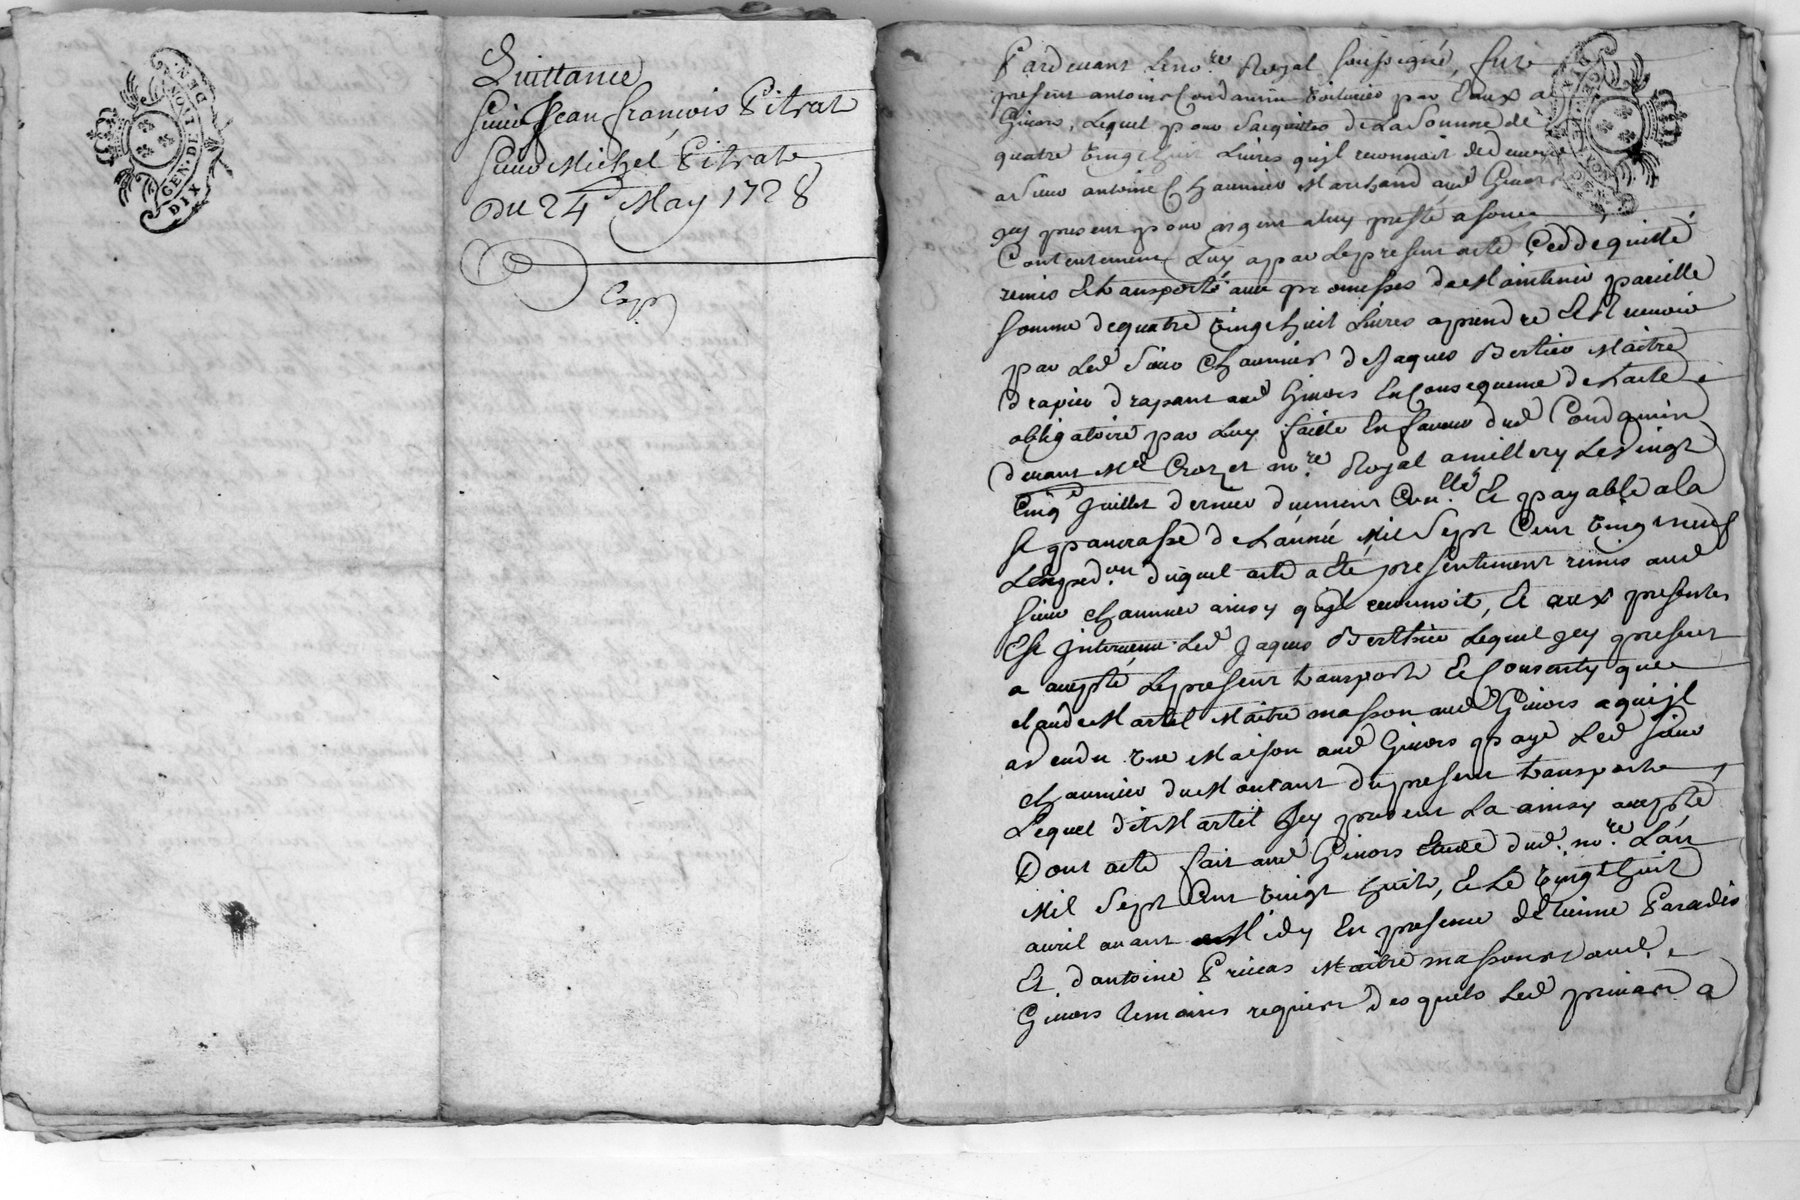 GEN. DE LYON
DIX DEN.
Quittance
Sieur Jean françois Pitrat
Sieur Michel Pitrat
Du 24e May 1728
Exp
Pardevant le no.re Royal soussigné, fut
present antoine Condamin voiturier par Eaux a
Givors, lequel pour sacquitter de La Somme de
quatre vingt huit Livres quil reconnoit de devoir
a Sieur antoine Chaumier Marchand aud Givors
icy present pour argent a luy presté a son
Contentement Luy a par le present acte Ceddé quitté
remis Et transporté avec promesses de Maintenir pareille
somme de quatre vingt huit Livres a prendre Et Recevoir
par Led Sieur Chaumier de Jaques Bertier Maitre
drapier drapant aud Givors En Consequence de Lacte
obligatoire par Luy faitte En faveur dud Condamin
devant Me Crozet no.re Royal a millery Le vingt
Cinq Juillet dernier duement Con.llé Et payable a la
St pancrasse de Lannée Mil Sept Cent vingt neuf
Lexped.on duquel acte a été presentement remis aud
sieur chaumier ainsy quil reconnoit, Et aux presentes
Est Intervenu Led Jaques Berthier Lequel icy present
a accepté Le present transport Et Consenty que
claude Martel Maitre masson aud Givors a qui il
a vendu une Maison aud Givors paye Led sieur
chaumier du Montant du present transport
Lequel dit Martel Icy present La ainsy accepté
Dont acte fait aud Givors Etude dud. no.re Lan
Mil Sept Cent vingt huit, Et Le vingt huit
avril avant Midy En presence dEtienne Paradis
Et dantoine Privas Maitre massons aud.
Givors temoins requis desquels Led privas a